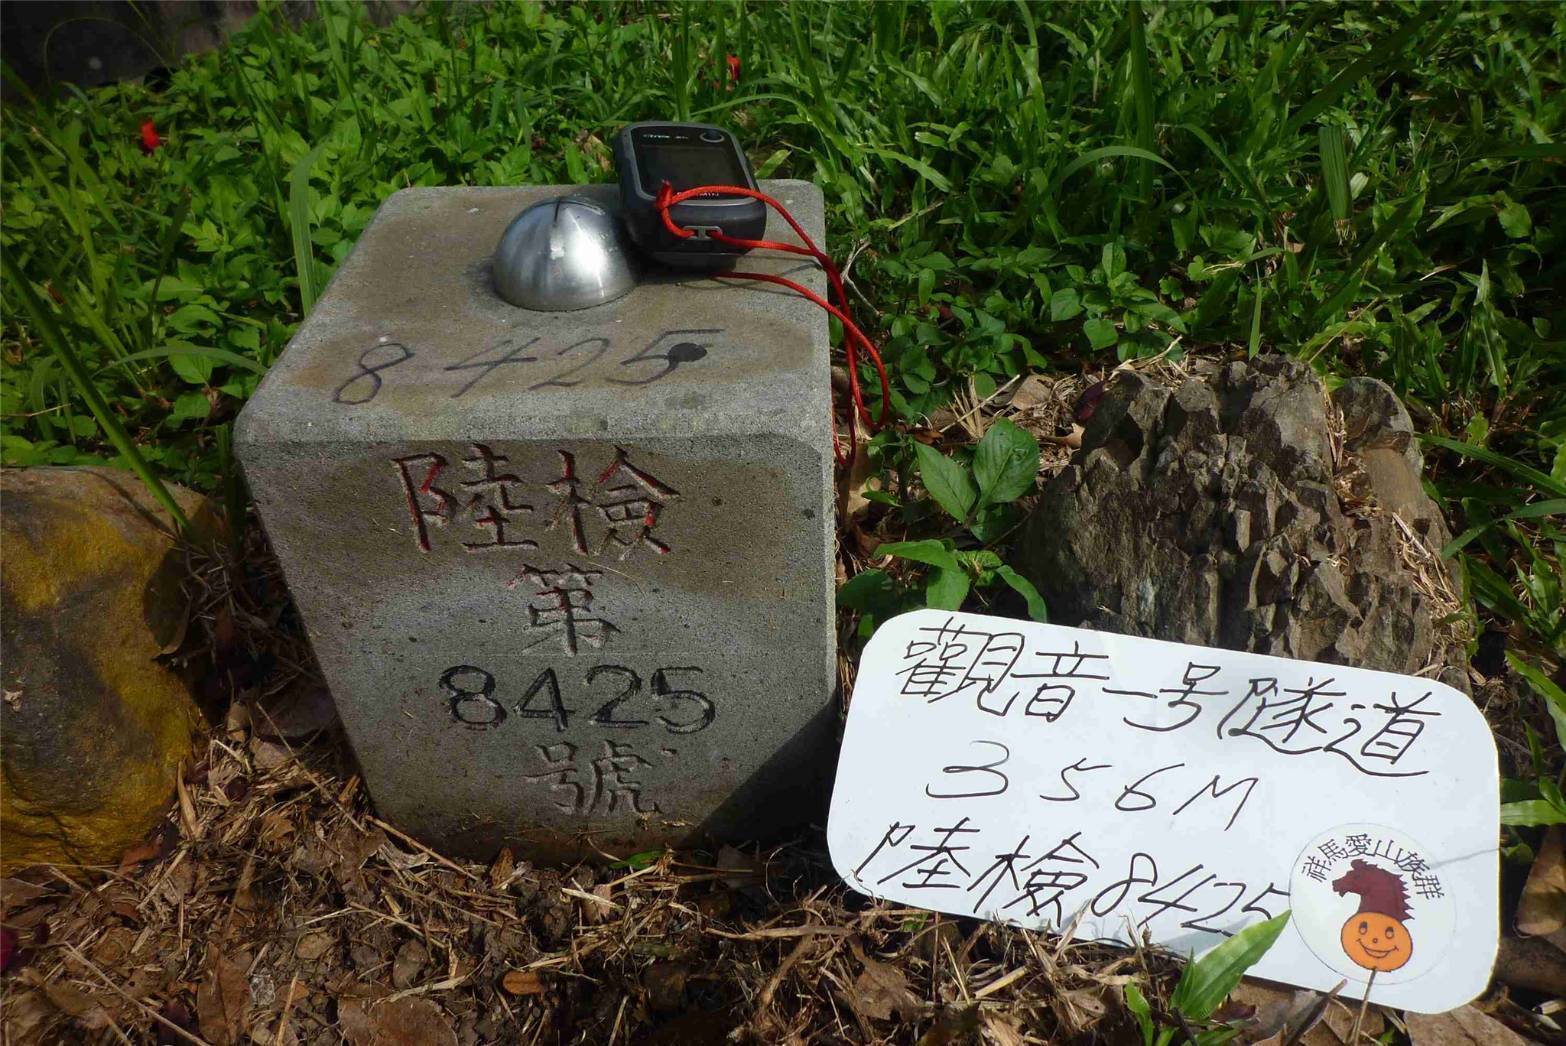 8425
陸檢
第
8425
號
觀音一号隧道
356M
陸檢8425
祥馬愛山族群